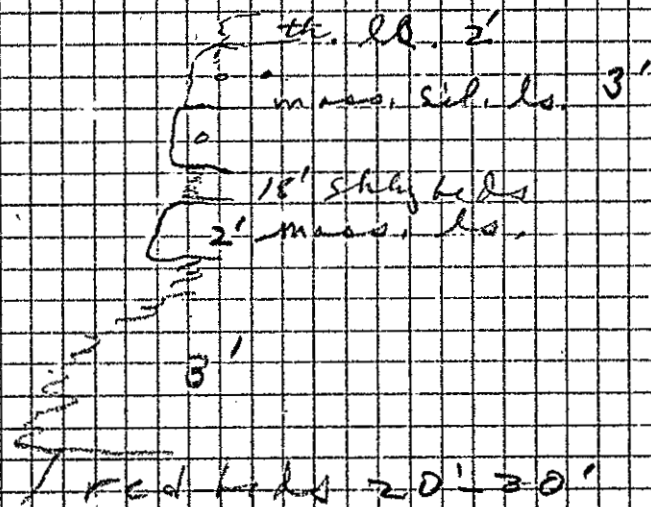 th. ls. 2'
mass. sil. ls. 3'
18' shly beds
2' mass. ls.
3'
red beds 20'-30'